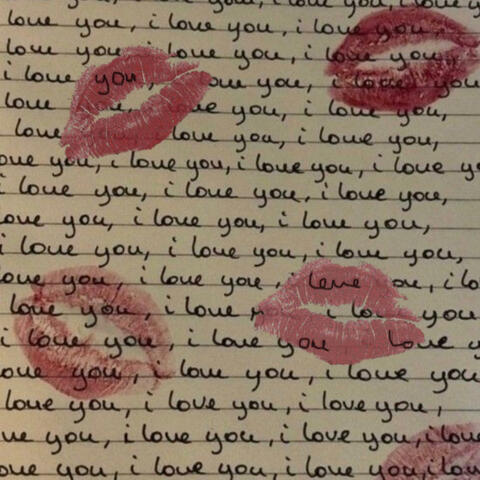 i love you, i love you, i love
love you, i love you, i love you,
love you, i love you, i love you,
i love you, you, i love you
love i love you, i love you,
love i love you, i love you,
love you, i love you, i love you, i love
i love you, i love you, i love you,
love you, i love you, i love you,
i love you, i love you, i love you,
love you, i love you, i love
love you, i love i you
i love you, i love you love
love you, i love you, i love you
love you, i love you, i love you,
i love you, i love you, i love
love you, i love you, i love you,